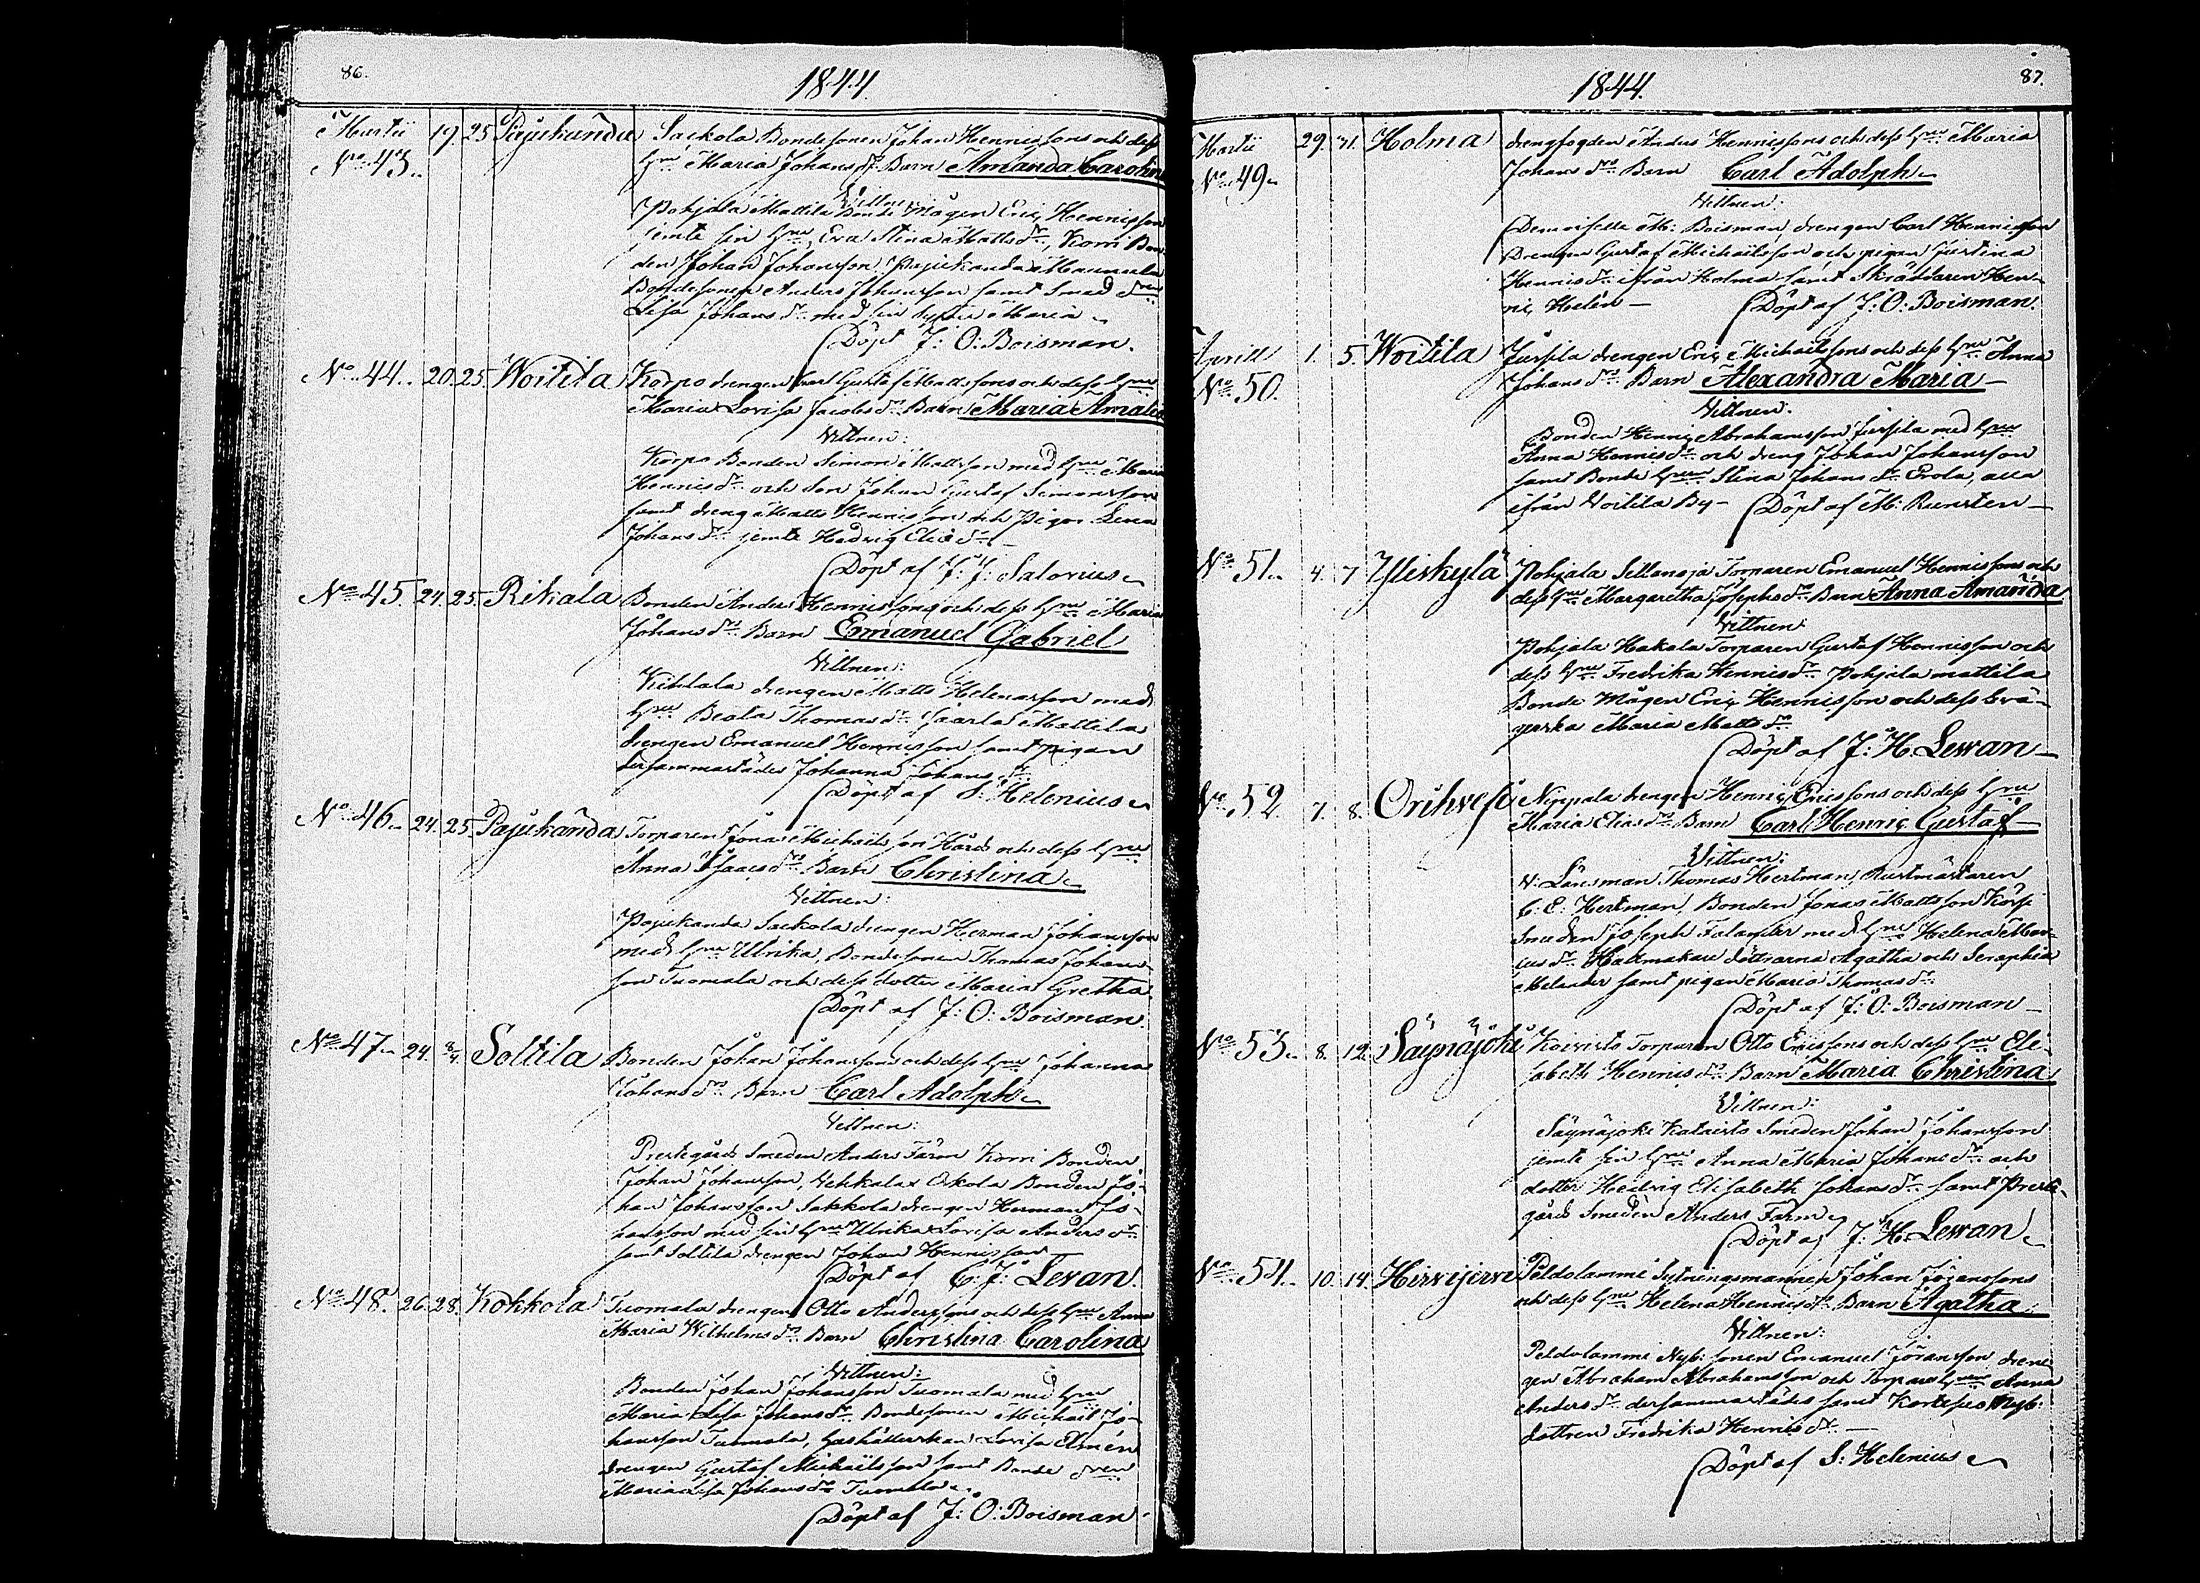 86.
1844.
Martii 19. 25. Pajukanda Sackola Bondesonen Johan Hennissons och dess
No 43. Hru Maria Johans dr Barn Amanda Carolin
Vittnen
Pohjola Mattila Bonde Mågen Eric Hennisson
jemte sin Hru Eva Stina Matts dr, Korri Bon
den Johan Johansson Pajukanda Mannula
Bondesonen Anders Johansson samt Smed
Lisa Johans dr med sin Maria
Döpt J: O: Boisman.
No 44. 20. 25. Woitila Korpo drengen Carl Gustaf Mattssons och dess Hru
Maria Lovisa Jacobs dr Barn Maria Amalia
Vittnen:
Korpo Bonden Simon Mattsson med Hru Maria
Hennis dr och Son Johan Gustaf Simonsson
samt dreng Matts Hennisson och Pigor Lena
Johans dr jemte Hedvig Elis dr
Döpt af J: J: Salovius
No 45. 24. 25. Rikala Bonden Anders Hennissons och dess Hru Maria
Johans dr Barn Emanuel Gabriel
Vittnen:
Kihlala drengen Matts Helenasson med
Hru Beata Thomas dr Mattila
drengen Emanuel Hennisson samt pigan
dersammastädes Johanna Johans dr
Döpt af S: Helenius
No 46. 24. 25. Pajukanda Torparen Jona Michaelsson Hård och dess Hru
Anna Isaacs dr Barn Christina
Vittnen:
Pajukanda Sackola drengen Herman Johansson
med Hru Ulrika, Bondesonen Thomas Johans
son Tuomala och dess dotter Maria Gretha
Döpt af J: O: Boisman.
No 47. 24. Soltila Bonden Johan Johanssons och dess Hru Johanna
Johans dr Barn Carl Adolph
Vittnen:
Prestgårds Smeden Anders Färm Korri Bonden
Johan Johansson, Uskala Bonden Jo-
han Johansson Sackola drengen Herman Jo-
hansson med sin Hru Ulrika Lovisa Anders dr
samt Soltila drengen Johan Hennisson
Döpt af C: J: Levan.
No 48. 26. 28. Kokkola Tuomala drengen Otto Anderssons och dess Hru Anna
Maria Wilhelms dr Barn Christina Carolina
Vittnen:
Bonden Johan Johansson Tuomala med Hru
Maria Lisa Johans dr Bondesonen Michael Jo-
hansson Tuomala, Lovisa Elmén
drengen Gustaf Michaelsson samt Bonde
Maria Lisa Johans dr Tuomala
Döpt af J: O: Boisman
87.
1844.
Martii 29. 31. Holma drengfogden Anders Hennissons och dess Hru Maria
No 49. Johans dr Barn Carl Adolph
Vittnen:
Demoiselle M: Boisman, drengen Carl Hennisson
Drengen Gustaf Michaelsson och pigan Justina
Hennis dr ifrån Holma samt Skräddaren Hen-
ric Helén — Döpt af J: O: Boisman.
Aprill 1. 5. Woitila Jussila drengen Eric Michaelssons och dess Hru Anna
No 50. Johans dr Barn Alexandra Maria
Vittnen:
Bonden Henric Abrahamsson Jussila med Hru
Anna Hennis dr och dreng Johan Johansson
samt Bonde Stina Johans dr Erola, alla
ifrån Woitila By — Döpt af M: Runsten
No 51. 4. 7 Yliskylä Pohjala Sillanoja Torparen Emanuel Hennissons och
dess Hru Margaretha Josephs dr Barn Anna Amanda
Vittnen:
Pohjala Hakala Torparen Gustaf Hennisson och
dess Hru Fredrika Hennis dr Pohjala mattila
Bonde Mågen Eric Hennisson och dess Svä-
gerska Maria Matts dr
Döpt af J: H: Levan
No 52. 7. 8. Orihvesi Nippala drengen Henric Ericssons och dess Hru
Maria Elias dr Barn Carl Henric Gustaf
Vittnen:
V: Länsman Thomas Hertman, Rustmästaren
C: E: Hertman, Bonden Jonas Mattsson Körp
Smeden Joseph Falander med Hru Helena
dr Hattmakare döttrarna Agatha och Seraphia
Melander samt pigan Maria Thomas dr
Döpt af J: O: Boisman
No 53. 8. 12. Säynäjoki Koivisto Torparen Otto Ericssons och dess Hru Eli-
sabeth Hennis dr Barn Maria Christina
Vittnen:
Säynäjoki Kataisto Smeden Johan Johansson
jemte sin Hru Anna Maria Johans dr och
dotter Hedvig Elisabeth Johans dr samt Prest-
gårds Smeden Anders Färm
Döpt af J: H: Levan
No 54. 10. 14. Hirvijervi Peldolammi Sytningsmannen Johan Göranssons
och dess Hru Helena Hennis dr Barn Agatha
Vittnen:
Peldolammi Nyb: sonen Emanuel Göransson dren-
gen Abraham Abrahamsson och Torpare Anna
Anders dr dersammastädes samt Nyb:
dottren Fredrika Hennis dr
Döpt af S: Helenius